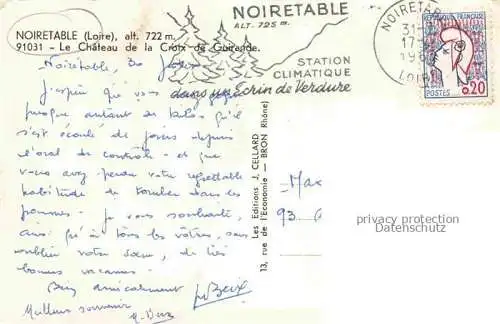 NOIRETABLE (Loire), alt. 722 m.
91031 - Le Château de la Croix de Guirande.
NOIRETABLE
ALT. 725 m.
STATION
CLIMATIQUE
dans un Ecrin de Verdure
NOIRETABLE
31-
17
19
LOIRE
REPUBLIQUE FRANÇAISE
POSTES
0.20
Noiretable, 30
J'espère que vous
presque autant de kilos qu'il
s'est écoulé de jours depuis
l'oral de contrôle - et que
vous avez perdu votre regrettable
habitude de tomber dans les
pommes. - Je vous souhaite,
ainsi qu'à tous les vôtres, sans
oublier votre sœur, de très
bonnes vacances -
Bien amicalement
Meilleurs souvenirs
Les Editions J. CELLARD
13, rue de l'Economie — BRON (Rhône)
- Max
93
privacy protection
Datenschutz